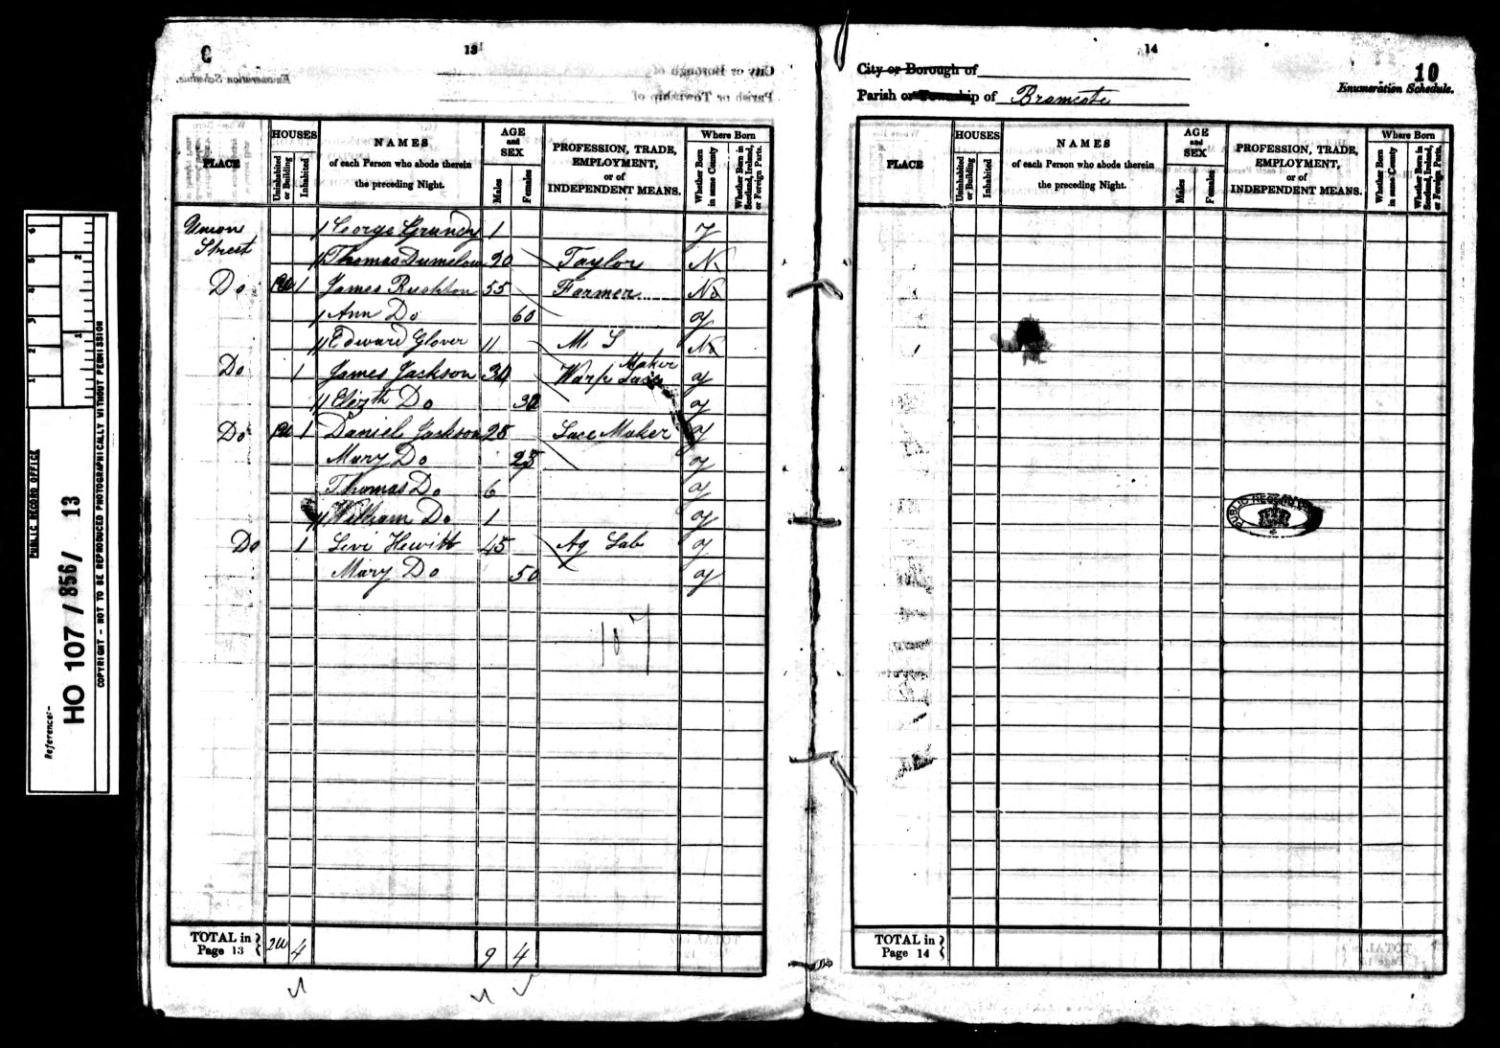 PUBLIC RECORD OFFICE
Reference:-
HO 107 / 856 / 13
COPYRIGHT - NOT TO BE REPRODUCED PHOTOGRAPHICALLY WITHOUT PERMISSION
C
13
PLACE
HOUSES
Uninhabited or Building
Inhabited
NAMES
of each Person who abode therein
the preceding Night.
AGE and SEX
Males
Females
PROFESSION, TRADE,
EMPLOYMENT,
or of
INDEPENDENT MEANS.
Where Born
Whether Born in same County
Whether Born in Scotland, Ireland, or Foreign Parts.
Union Street George Grundy 1 y
Thomas Dumelow 20 Taylor N
Do 1 James Rushton 55 Farmer No
Ann Do 60 y
Edward Glover 11 M S No
Do 1 James Jackson 30 Warp Lace Maker y
Elizth Do 30 y
Do 1 Daniel Jackson 25 Lace Maker y
Mary Do 25 y
Thomas Do 6 y
William Do 1 y
Do 1 Levi Hewitt 45 Ag Lab y
Mary Do 50 y
107
TOTAL in Page 13 2u 4 9 4
14
City or Borough of
Parish or Township of Bramcote
10
Enumeration Schedule.
PLACE
HOUSES
Uninhabited or Building
Inhabited
NAMES
of each Person who abode therein
the preceding Night.
AGE and SEX
Males
Females
PROFESSION, TRADE,
EMPLOYMENT,
or of
INDEPENDENT MEANS.
Where Born
Whether Born in same County
Whether Born in Scotland, Ireland, or Foreign Parts.
PUBLIC RECORD
TOTAL in Page 14